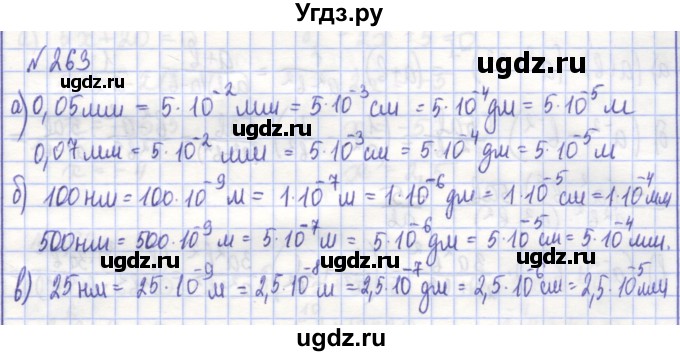 Угдз.ру
№ 263
ugdz.ru ugdz.ru
а) 0,05 мм = 5·10⁻² мм = 5·10⁻³ см = 5·10⁻⁴ дм = 5·10⁻⁵ м
ugdz.ru
0,07 мм = 5·10⁻² мм = 5·10⁻³ см = 5·10⁻⁴ дм = 5·10⁻⁵ м
ugdz.ru ugdz.ru
б) 100 нм = 100·10⁻⁹ м = 1·10⁻⁷ м = 1·10⁻⁶ дм = 1·10⁻⁵ см = 1·10⁻⁴ мм
500 нм = 500·10⁻⁹ м = 5·10⁻⁷ м = 5·10⁻⁶ дм = 5·10⁻⁵ см = 5·10⁻⁴ мм.
ugdz.ru ugdz.ru
в) 25 нм = 25·10⁻⁹ м = 2,5·10⁻⁸ м = 2,5·10⁻⁷ дм = 2,5·10⁻⁶ см = 2,5·10⁻⁵ мм
ugdz.ru ugdz.ru